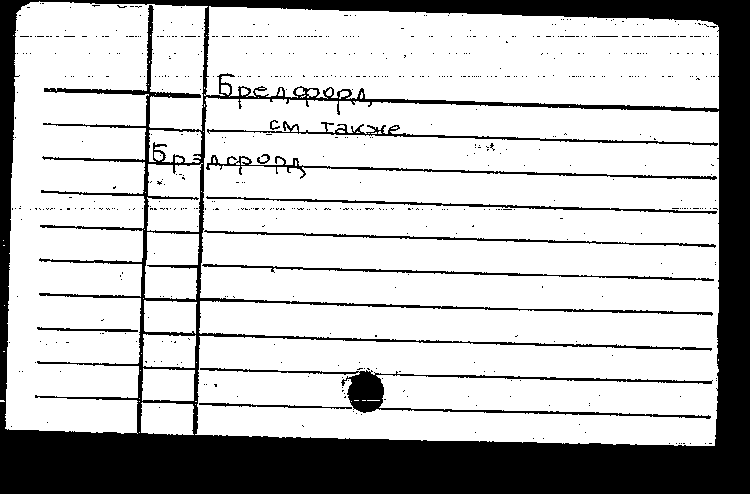 Бредфорд
см. также
Брэдфорд